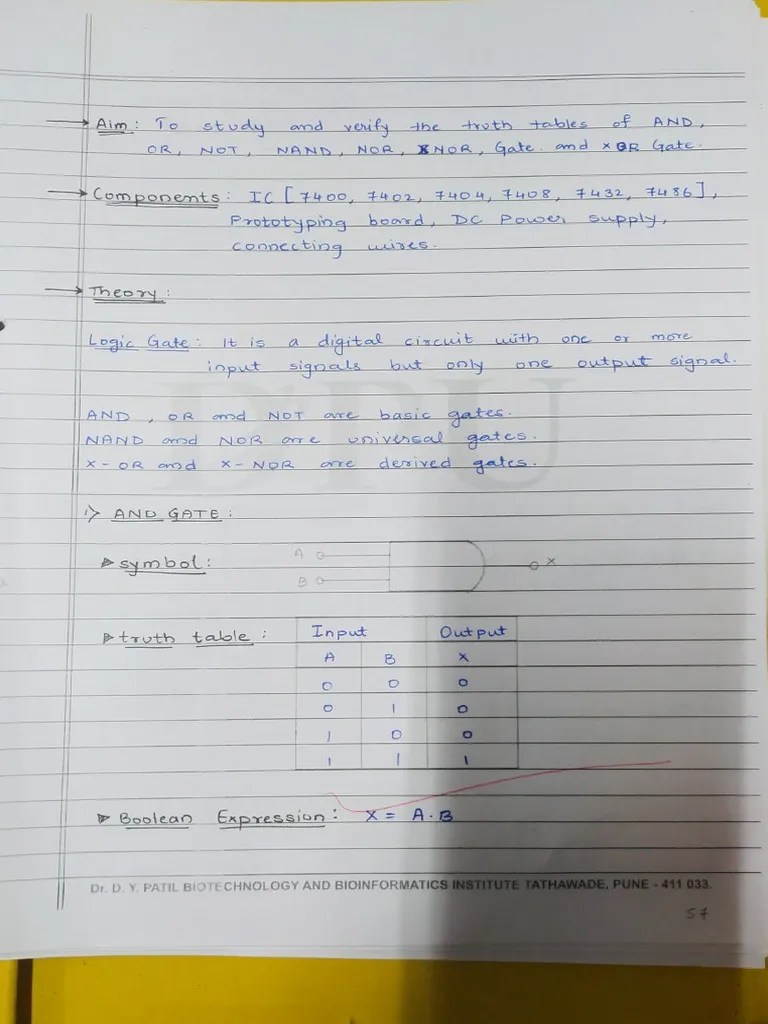 → Aim : To study and verify the truth tables of AND,
OR, NOT, NAND, NOR, XNOR, Gate. and XOR Gate.
→ Components : IC [7400, 7402, 7404, 7408, 7432, 7486],
Prototyping board, DC Power supply,
connecting wires.
→ Theory :
Logic Gate : It is a digital circuit with one or more
input signals but only one output signal.
DPU
AND, OR and NOT are basic gates.
NAND and NOR are universal gates.
X-OR and X-NOR are derived gates.
1) AND GATE :
symbol :
A
B
X
truth table :
Input Output
A B X
0 0 0
0 1 0
1 0 0
1 1 1
Boolean Expression : X = A·B
Dr. D. Y. PATIL BIOTECHNOLOGY AND BIOINFORMATICS INSTITUTE TATHAWADE, PUNE - 411 033.
57